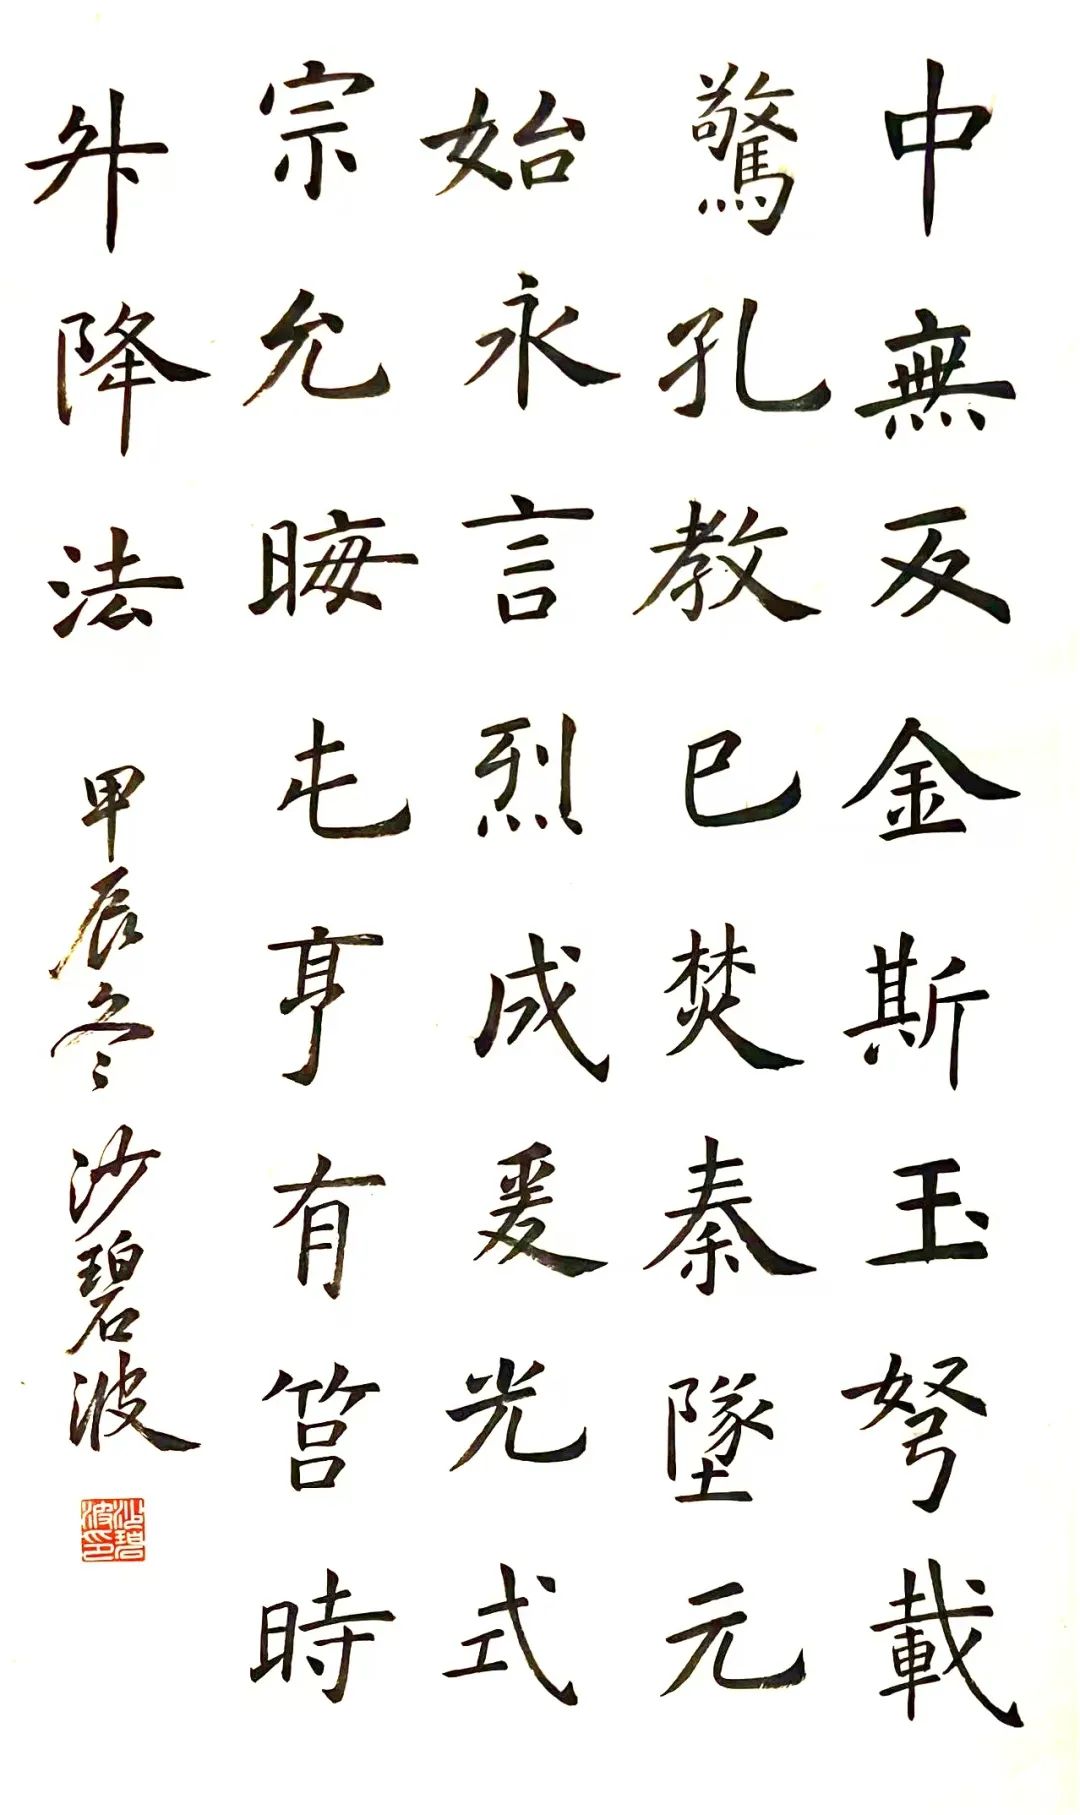 中無反金斯玉弩載
驚孔教已焚秦墜元
始永言烈成爰光式
宗允晦屯亨有筥時
外降法
甲辰冬沙碧波
沙碧波印